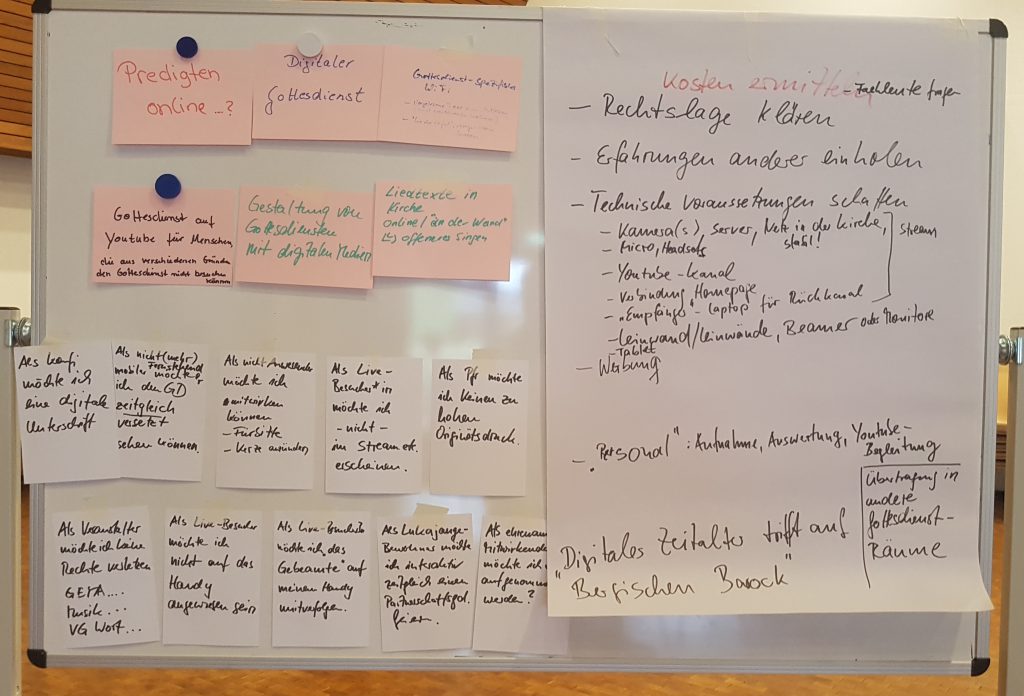 Predigten
online ...?
Digitaler
Gottesdienst
Gottesdienst-
WiFi
Gottesdienst auf
Youtube für Menschen,
die aus verschiedenen Gründen
den Gottesdienst nicht besuchen
können
Gestaltung von
Gottesdiensten
mit digitalen Medien
Liedtexte in
Kirche
online / "an der Wand"
offeneres Singen
Als Konfi
möchte ich
eine digitale
Unterschrift
Als nicht (mehr)
mobiler
möchte
ich den GD
zeitgleich
versetzt
sehen können.
Als nicht Anwesender
möchte ich
mitwirken
können
- Fürbitte
- Kerze anzünden
Als Live-
Besucher*in
möchte ich
- nicht -
im Stream etc.
erscheinen.
Als Pfr möchte
ich keinen zu
hohen
Originitsdruck.
Als Veranstalter
möchte ich keine
Rechte verletzen
GEMA....
Musik...
VG Wort...
Als Live-Besucher
möchte ich
nicht auf das
Handy
angewiesen sein
Als Live-Besucher
möchte ich das
"Gebeamte" auf
meinem Handy
mitverfolgen.
möchte
ich interaktiv
zeitgleich einen
Partnerschaftsgd.
feiern.
Als ehrenamt
Mitwirkende
möchte ich
aufgenommen
werden?
Kosten ermitteln
- Fachleute fragen
- Rechtslage klären
- Erfahrungen anderer einholen
- Technische Voraussetzungen schaffen
- Kamera(s), Server, Netz in der Kirche, stabil!
- Micro, Headsets
Stream
- Youtube-Kanal
- Verbindung Homepage
- "Empfänger"-Laptop für Rückkanal
- Leinwand/Leinwände, Beamer oder Monitore
- Tablet
- Werbung
- "Personal": Aufnahme, Auswertung, Youtube-
Begleitung
Übertragung in
andere
Gottesdienst-
Räume
"Digitales Zeitalter trifft auf
Bergischen Barock"